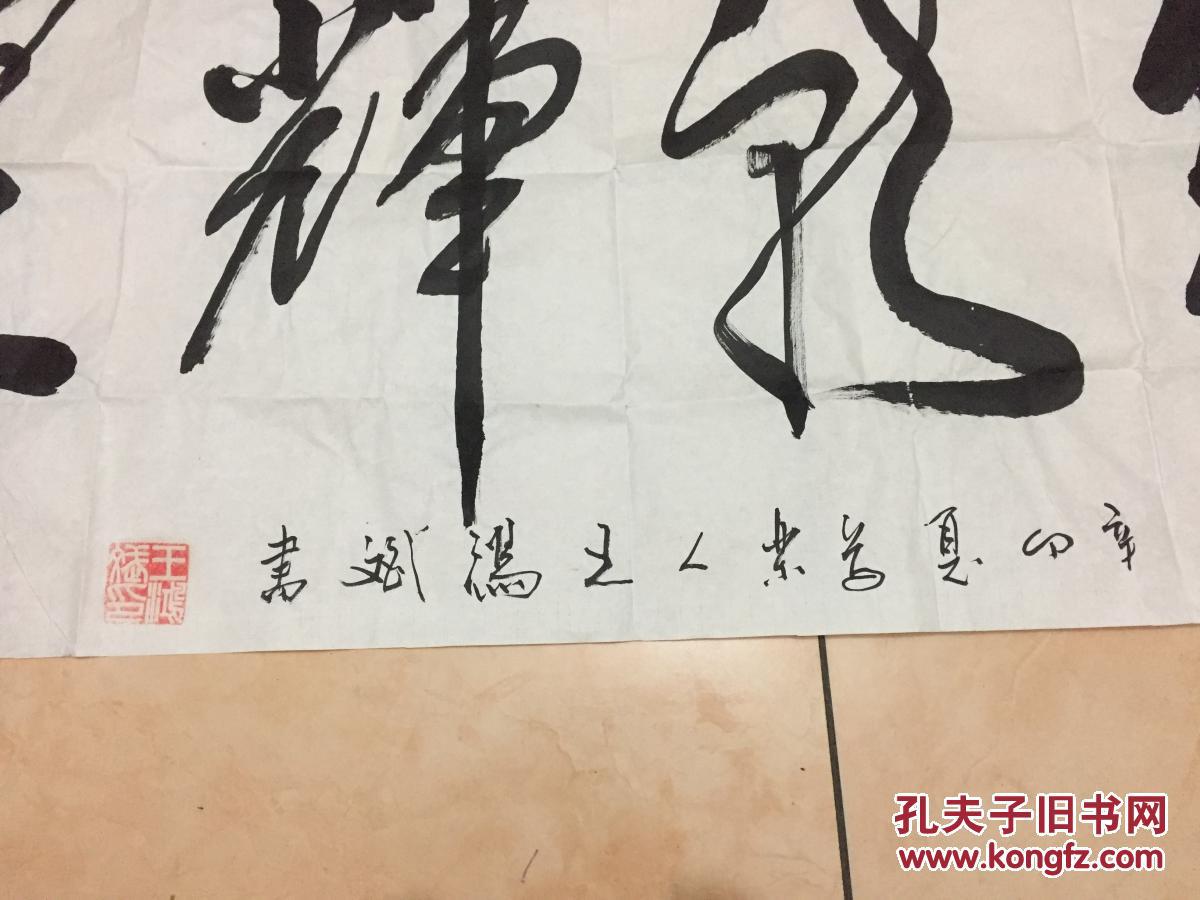 輝
辛卯夏萬榮人王鴻斌書
王鴻斌印
孔夫子旧书网
www.kongfz.com